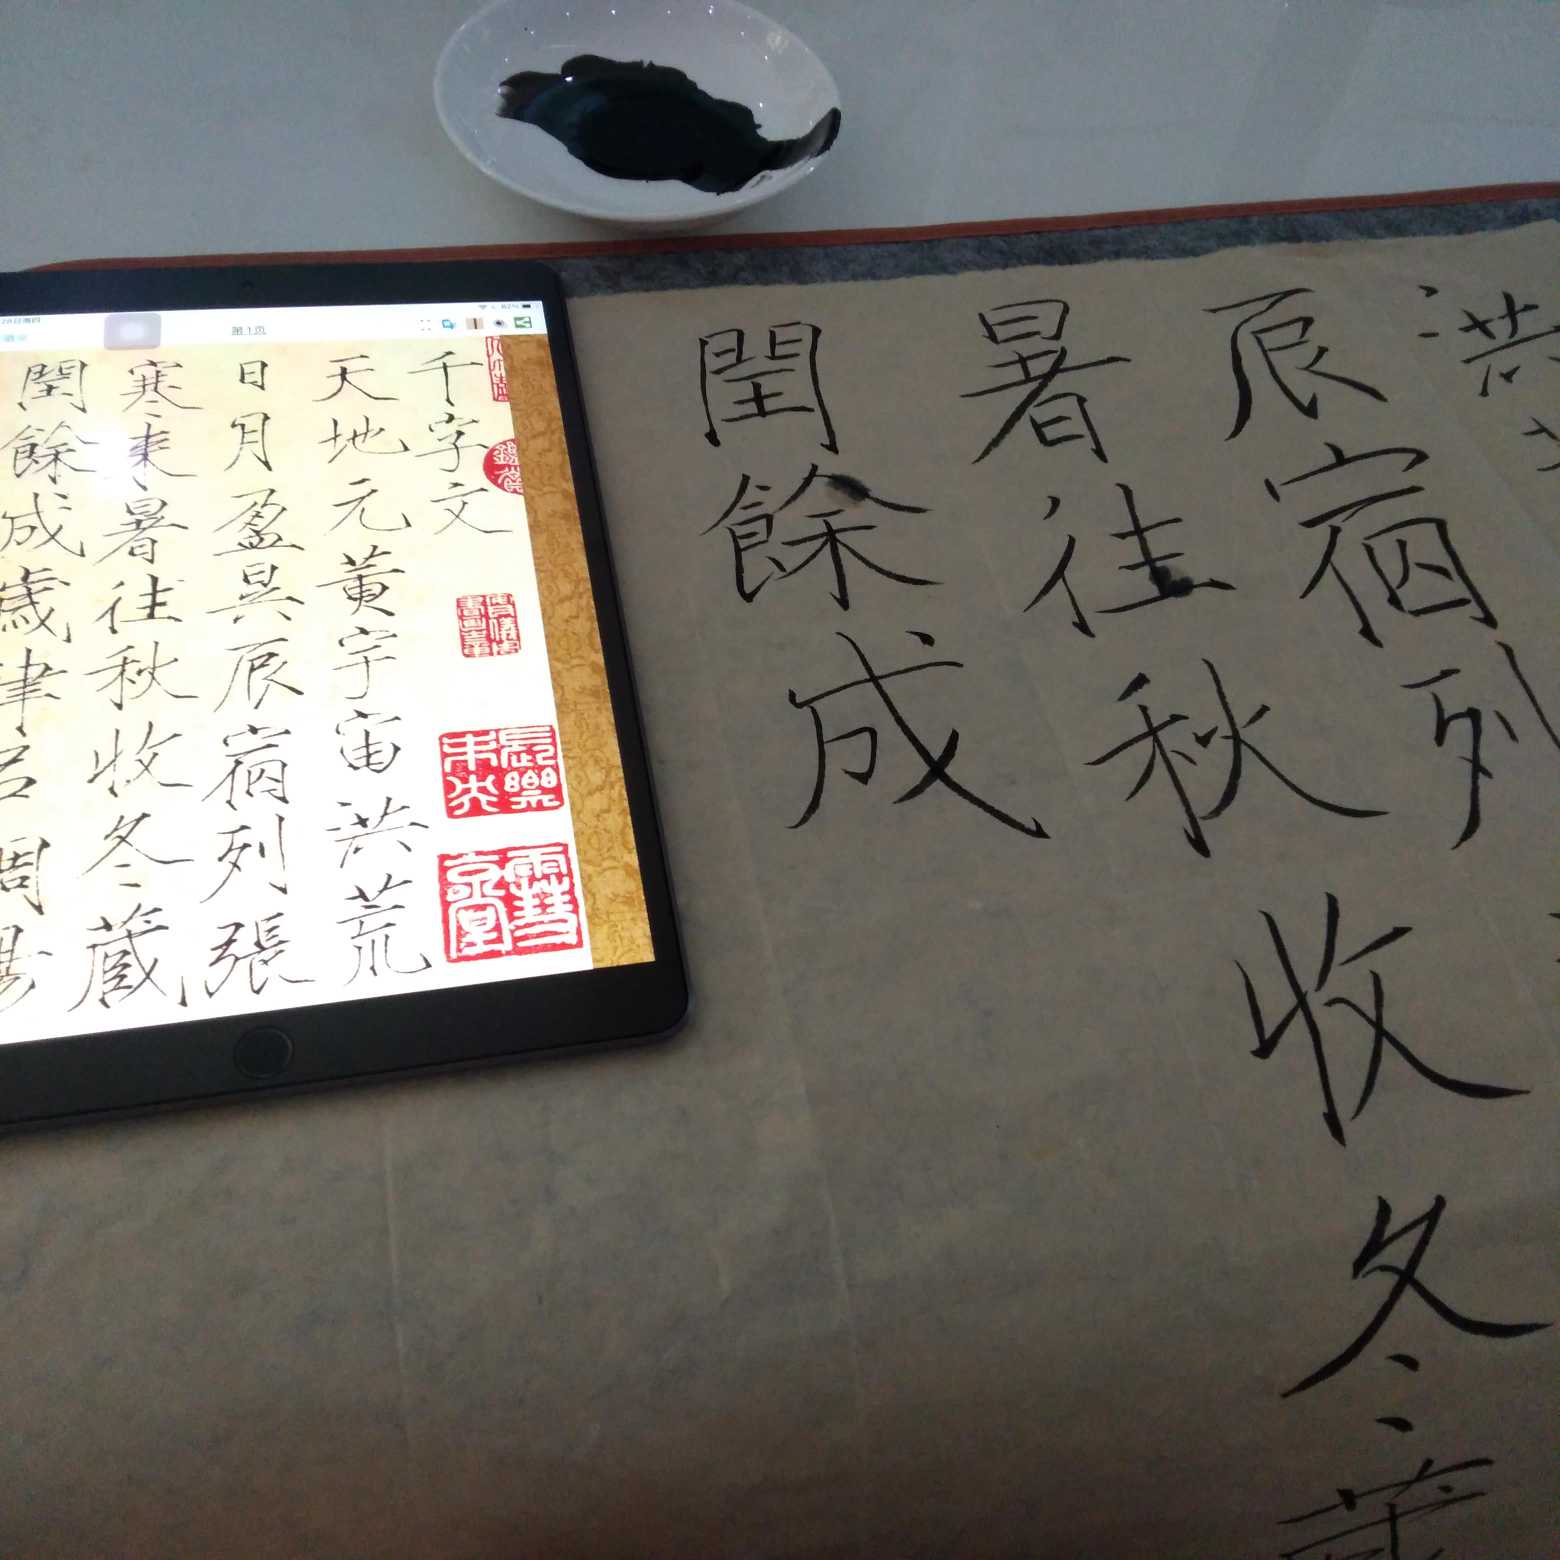 第1页
82%
千字文
天地元黄宇宙洪荒
日月盈昃辰宿列張
寒来暑往秋收冬蔵
閏餘成歳律吕調陽
長樂未央
洪荒
辰宿列
暑往秋收冬蔵
閏餘成